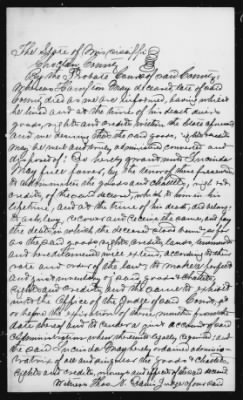 The State of Mississippi
County
By the Probate Court of said County
Whereas Harrison May deceased late of said
County died as we are informed, having whilst
he lived and at the time of his death divers
goods, rights and credits within the State aforesaid
and we desiring that the said goods, rights
may be well and truly administered converted and
disposed of: Do hereby grant unto Lucinda
May full power, by the tenor of these presents
to administer the goods and chattels, rights &
credits of the said deceased, which to him in his
lifetime, and at the time of his death, did belong
to ask, levy, recover and receive the same, and pay
the debts in which the deceased stood bound so far
as the said goods, rights, credits, lands, tenements
and hereditaments will extend, according to their
rate and order of the law; to make a perfect
and just inventory of said goods & chattels
rights and credits, and the same to exhibit
into the Office of the Judge of said Court, at
or before the expiration of three months from the
date hereof and to render a just account of said
Administration when thereunto legally required: and
the said Lucinda May hereby ordain administ-
ratrix of all and singular the goods & chattels,
rights and credits, money and effects of the said deceased
Witness Thos. N. Judge of our said